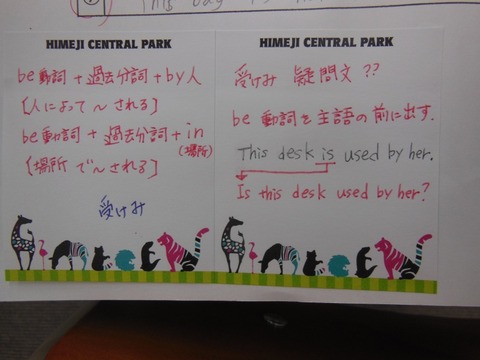 This bag is
HIMEJI CENTRAL PARK
be動詞+過去分詞+by人
[人によって〜される]
be動詞+過去分詞+in
(場所)
[場所で〜される]
受けみ
HIMEJI CENTRAL PARK
受けみ 疑問文??
be 動詞を主語の前に出す.
This desk is used by her.
Is this desk used by her?